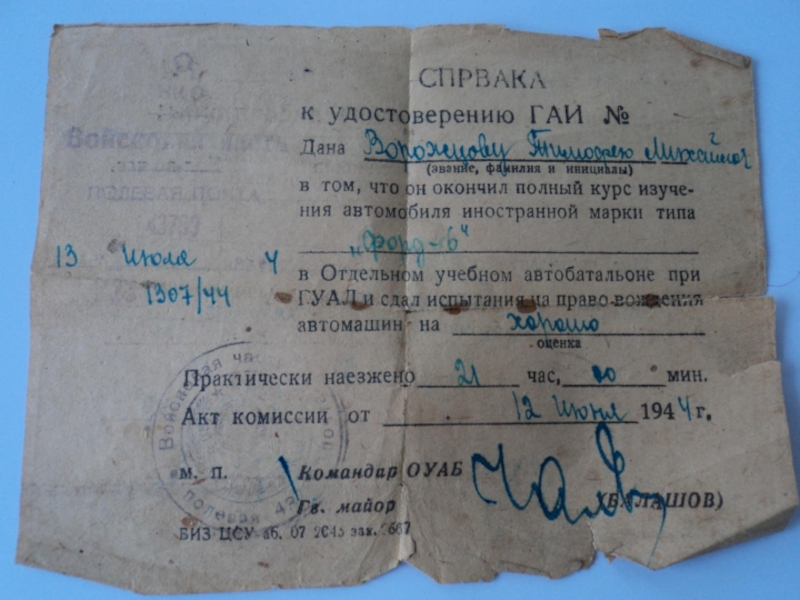 СПРВАКА
к удостоверению ГАИ №
Дана Ворожцову Тимофею
(звание, фамилия и инициалы)
в том, что он окончил полный курс изуче-
ния автомобиля иностранной марки типа
„Форд-6"
в Отдельном учебном автобатальоне при
ГУАЛ и сдал испытания на право вождения
автомашин на хорошо
оценка
Практически наезжено 21 час, 00 мин.
Акт комиссии от 12 Июня 1944 г.
М. П.
Командир ОУАБ
Гв. майор (БАЛАШОВ)
БИЗ ЦСУ
Войсковая
ПОЛЕВАЯ ПОЧТА
13 Июля 4
1307/44
Войсковая ча
полевая